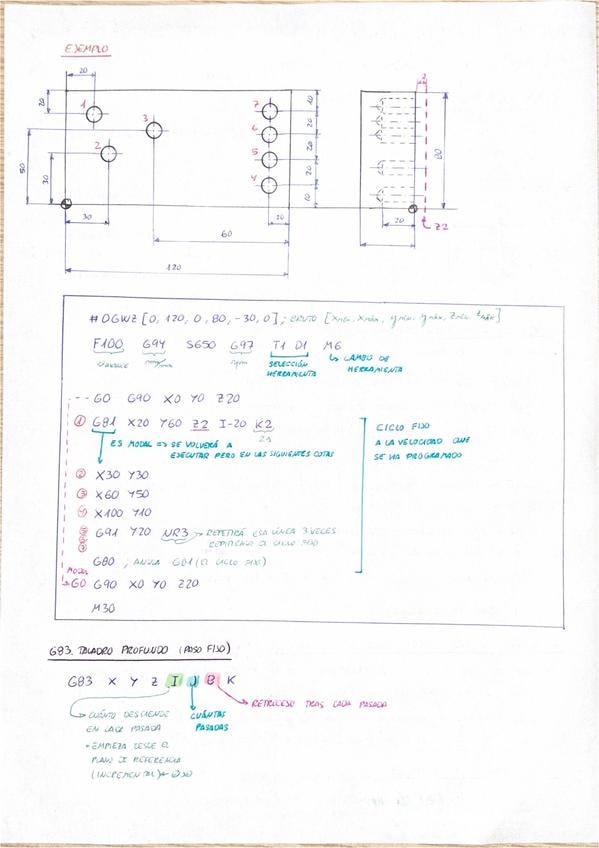 EJEMPLO
20
20
50
30
1
2
3
7
6
5
4
10
20
20
20
10
30
60
10
120
2
80
20
Z2
#DGWZ [0, 120, 0, 80, -30, 0] ; BRUTO [Xmín, Xmáx, ymín, ymáx, Zmín, Zmáx]
F100 G94 S650 G97 T1 D1 M6
AVANCE mm/min rpm SELECCIÓN HERRAMIENTA CAMBIO DE HERRAMIENTA
G0 G90 X0 Y0 Z20
① G81 X20 Y60 Z2 I-20 K2
2s
ES MODAL => SE VOLVERÁ A
EJECUTAR PERO EN LAS SIGUIENTES COTAS
CICLO FIJO
A LA VELOCIDAD QUE
SE HA PROGRAMADO
② X30 Y30
③ X60 Y50
④ X100 Y10
⑤ ⑥ ⑦ G91 Y20 NR3 → REPETIRÁ ESA LÍNEA 3 VECES
EL CICLO FIJO
G80 ; ANULA G81 (EL CICLO FIJO)
MODAL
G0 G90 X0 Y0 Z20
M30
G83. TALADRO PROFUNDO (PASO FIJO)
G83 X Y Z I J B K
RETROCESO TRAS CADA PASADA
CUÁNTAS
PASADAS
CUÁNTO DESCIENDE
EN CADA PASADA
• EMPIEZA DESDE EL
PLANO DE REFERENCIA
(INCREMENTAL)